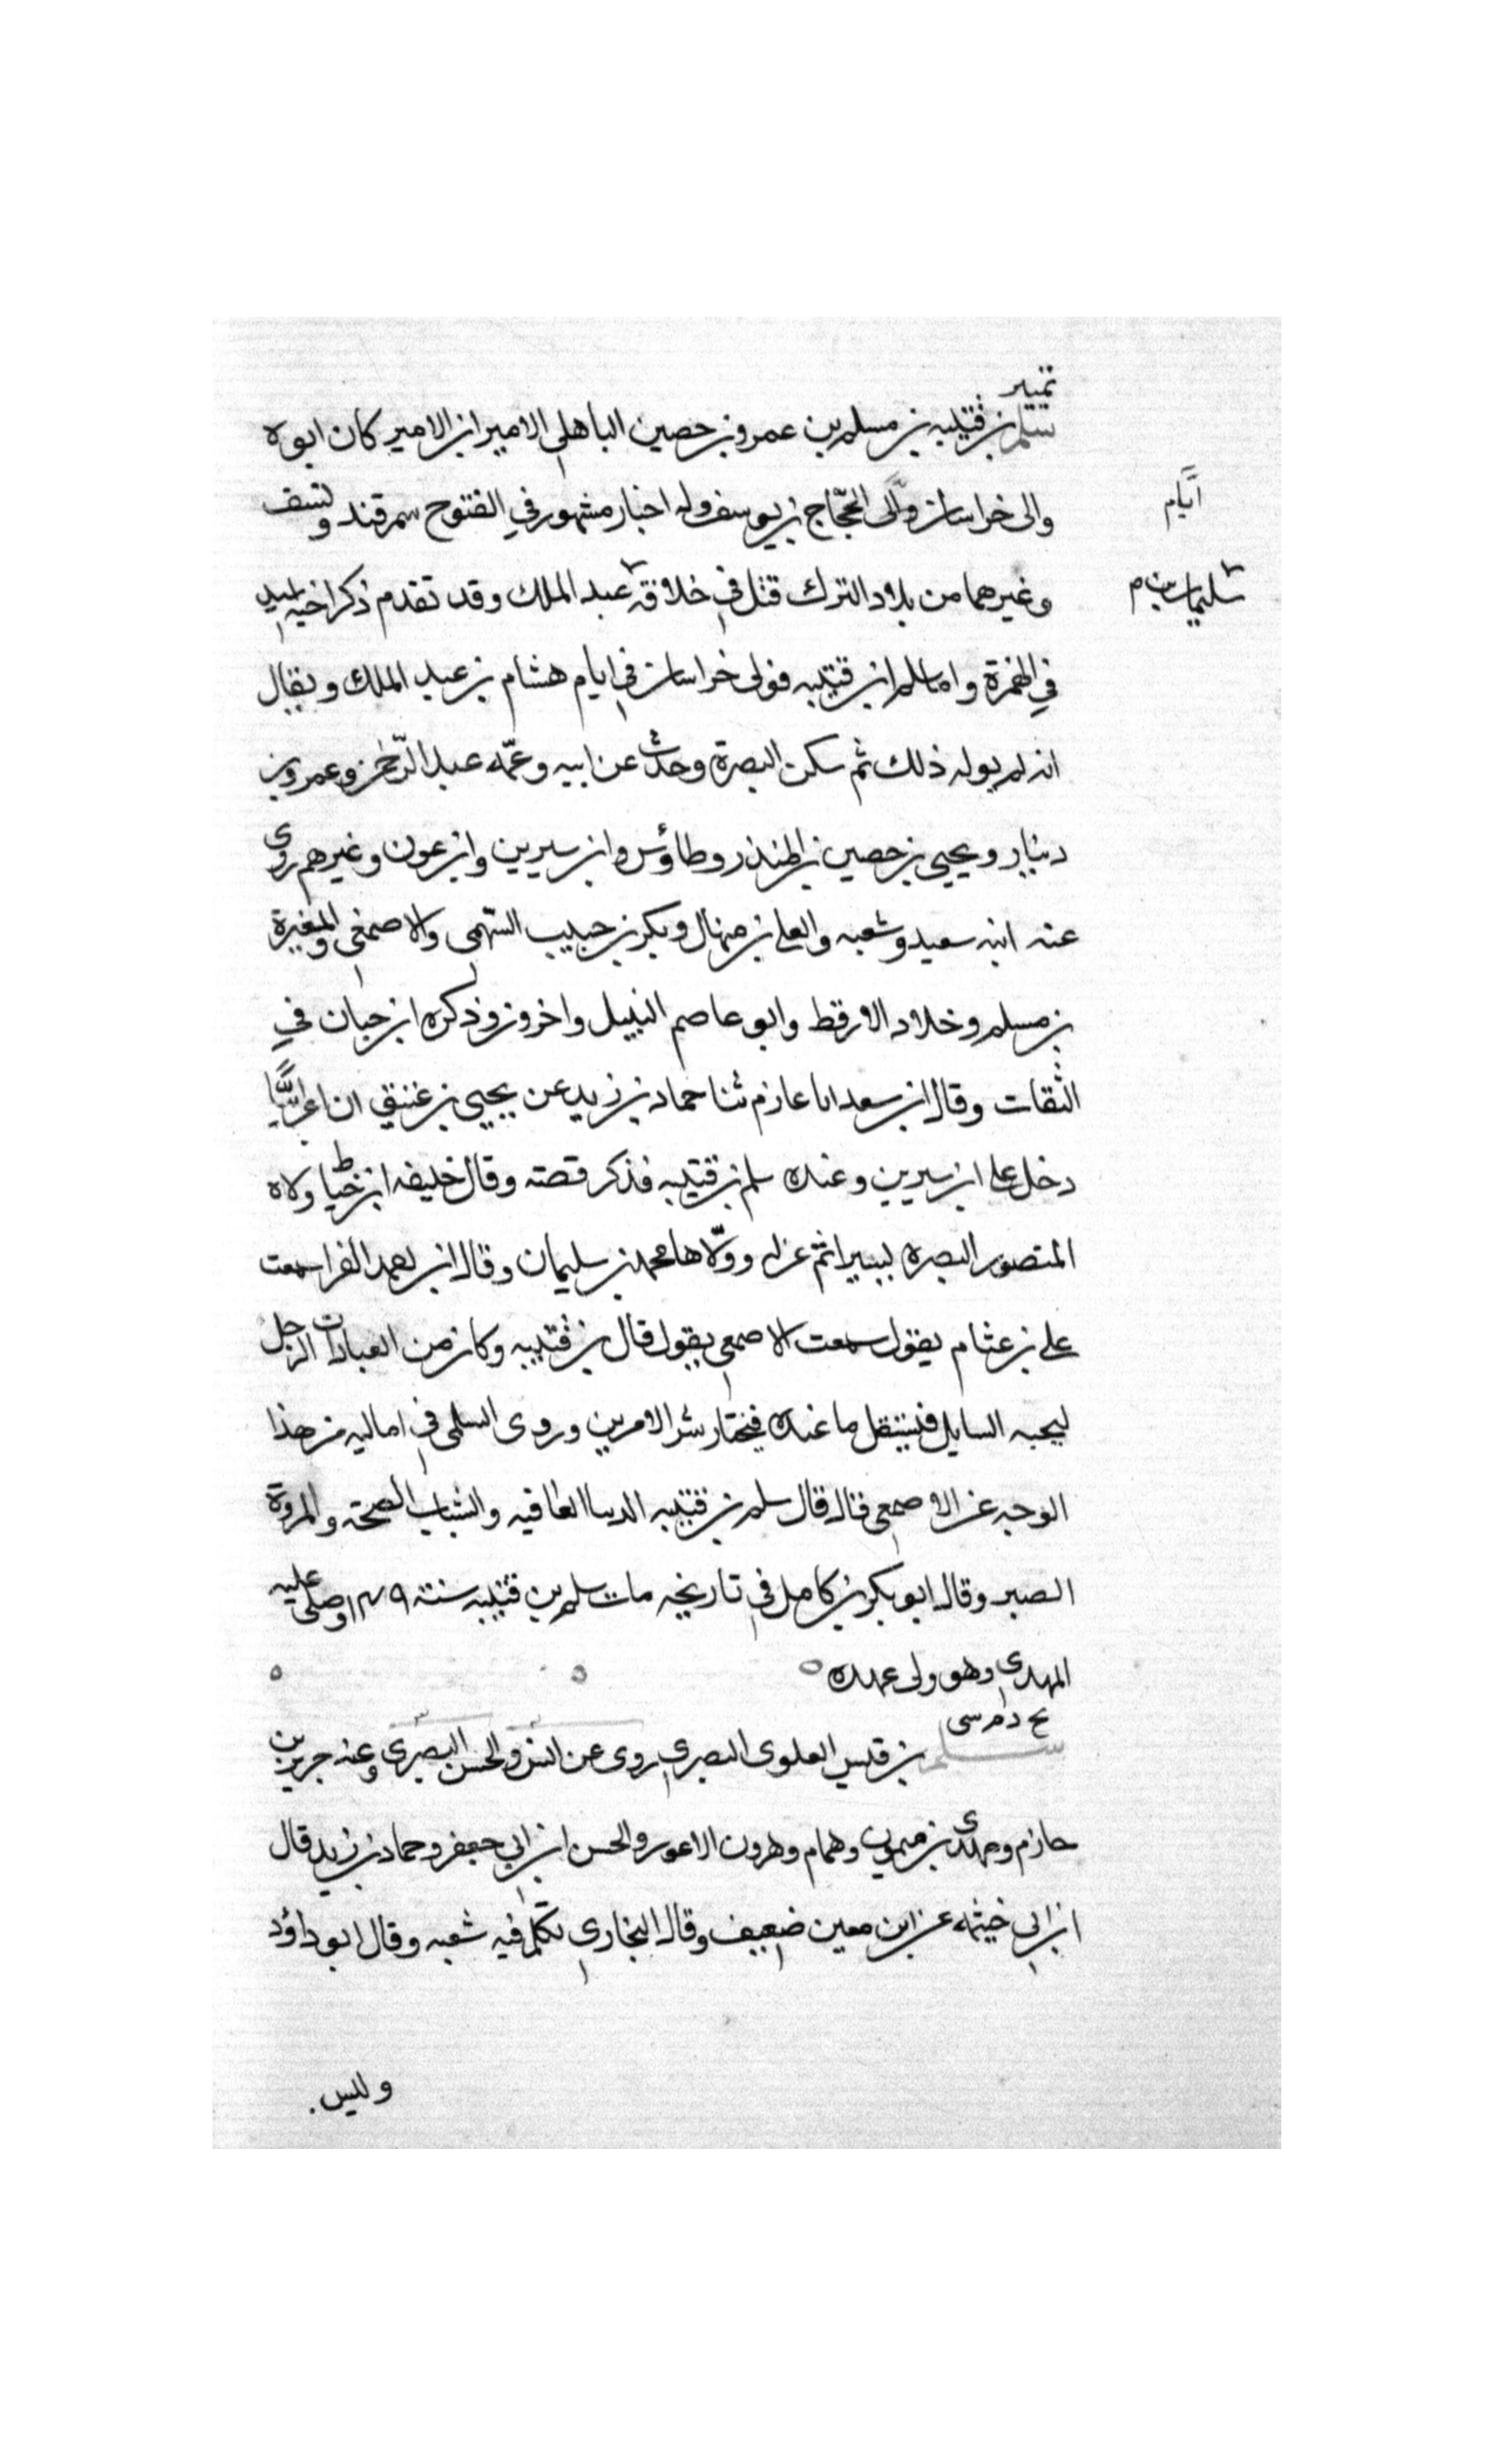 تمييز
سلم بن قتيبه بن مسلم بن عمرو بن حصين الباهلي الامير ابن الامير كان ابوه
والى خراسان وللى الحجّاج بن يوسف وله اخبار مشهور في الفتوح سمرقند ونسف
ايّام
وغيرهما من بلاد الترك قتل في خلافة عبد الملك وقد تقدم ذكر اخيه
سليمان بن
في الهمزة واما سلم ابن قتيبه فولى خراسان في ايام هشام بن عبد الملك ويقال
انه لم يوله ذلك ثم سكن البصرة وحدث عن ابيه وعمّه عبد الرّحمن وعمرو بن
دينار ويحيى بن حصين بن المنذر وطاؤس وابن سيرين وابن عون وغيرهم روى
عنه ابنه سعيد وشعبه والعلا بن منهال وبكر بن حبيب السّهمى والاصمعي والمغيرة
بن مسلم وخلاد الارقط وابو عاصم النبيل واخرون وذكره ابن حبان في
الثقات وقال ابن سعد انا عازم ثنا حماد بن زيد عن يحيى بن عتيق ان اعرابيًّا
دخل على ابن سيرين وعنده سلم بن قتيبه فذكر قصته وقال خليفه ابن خياط ولاه
المنصور البصره يسيرا ثم عزله وولّاها محمد بن سليمان وقال ابن الفرا سمعت
على بن عثام يقول سمعت الاصمعي يقول قال بن قتيبه وكان من العبادات الرجل
ليجبه السايل فيستقل ما عنده فيختار شر الامرين وروى السلمى في اماليه من هذا
الوجه عن الاصمعي قال قال سلم بن قتيبه الدنيا العافيه والشباب الصحة والمروة
الصبر وقال ابو بكر بن كامل في تاريخه مات سلم بن قتيبه سنة ١٤٩ وصلى عليه
المهدي وهو ولى عهده ه ه ه
بخ د م سى
سلم بن قيس العلوى البصري روى عن انس والحسن البصرى وعنه جرير بن
حازم ومهدى بن ميمون وهمام وهرون الاعور والحسن ابن ابي جعفر وحماد بن زيد قال
ابن ابي خيثمه عن ابن معين ضعيف وقال البخاري تكلم فيه شعبه وقال ابو داؤد
وليس.